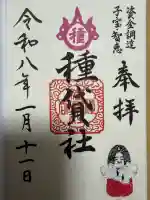 奉拝
資金調達
子宝智恵
種
種貸社
令和八年一月十一日